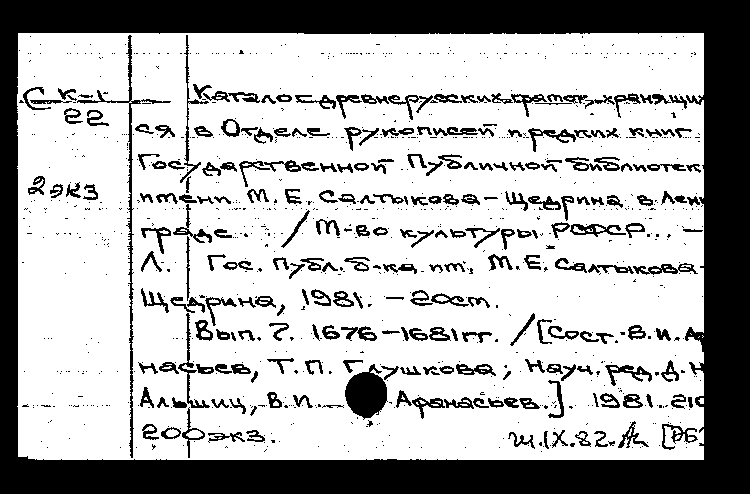 С К-1 Каталог древнерусских грамот, хранящих
22
ся в Отделе рукописей и редких книг
Государственной Публичной библиотек
2 экз имени М.Е. Салтыкова-Щедрина в Лени
граде. . / М-во культуры РСФСР... —
Л. Гос. Публ. б-ка им. М.Е. Салтыкова-
Щедрина, 1981. – 20 см.
Вып. 7. 1676–1681 гг. / [Сост. В.И. Аф
насьев, Т.П. Глушкова; Науч. ред. Д.Н
Альшиц, В.И. Афанасьев.]. 1981. 210
200 экз. IX.82.